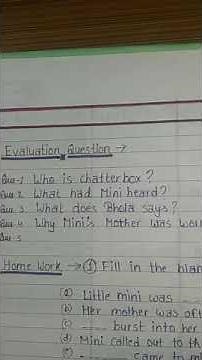 Evaluation Question →
Que-1 Who is chatterbox?
Que-2 What had Mini heard?
Que-3 What does Bhola says?
Que-4 Why Mini's Mother was
Que-5
Home Work → ① Fill in the
(a) Little mini was
(b) Her mother was
(c) burst into her
(d) Mini called out to
(e) came to